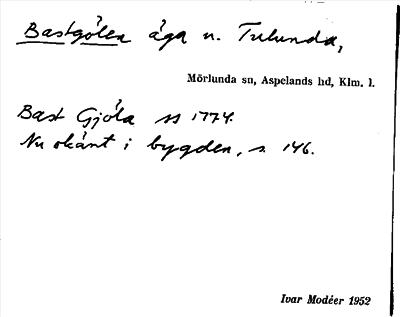 Bastgölen äga n. Tulunda,
Mörlunda sn, Aspelands hd, Klm. l.
Bast Gjöla ss 1774.
Nu okänt i bygden, s. 146.
Ivar Modéer 1952